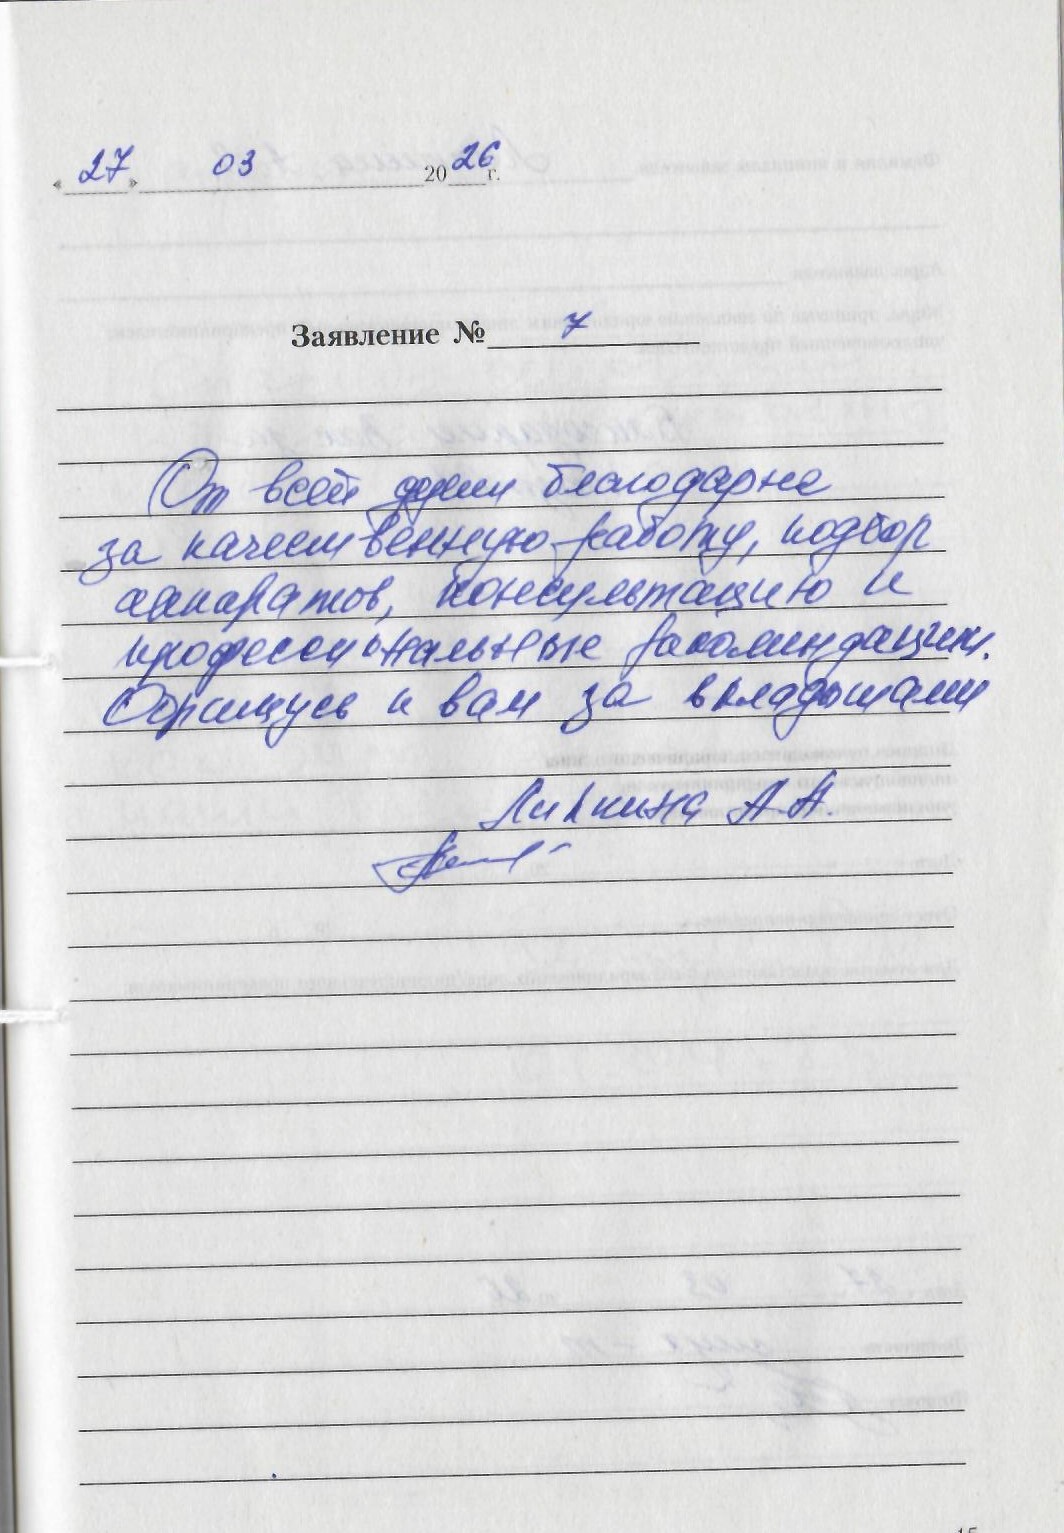 «27» 03 2026 г.
Заявление № 7
От всей души благодарна
за качественную работу, подбор
аппаратов, консультацию и
профессиональные рекомендации.
Обращусь к вам за вкладышами
А.Н.